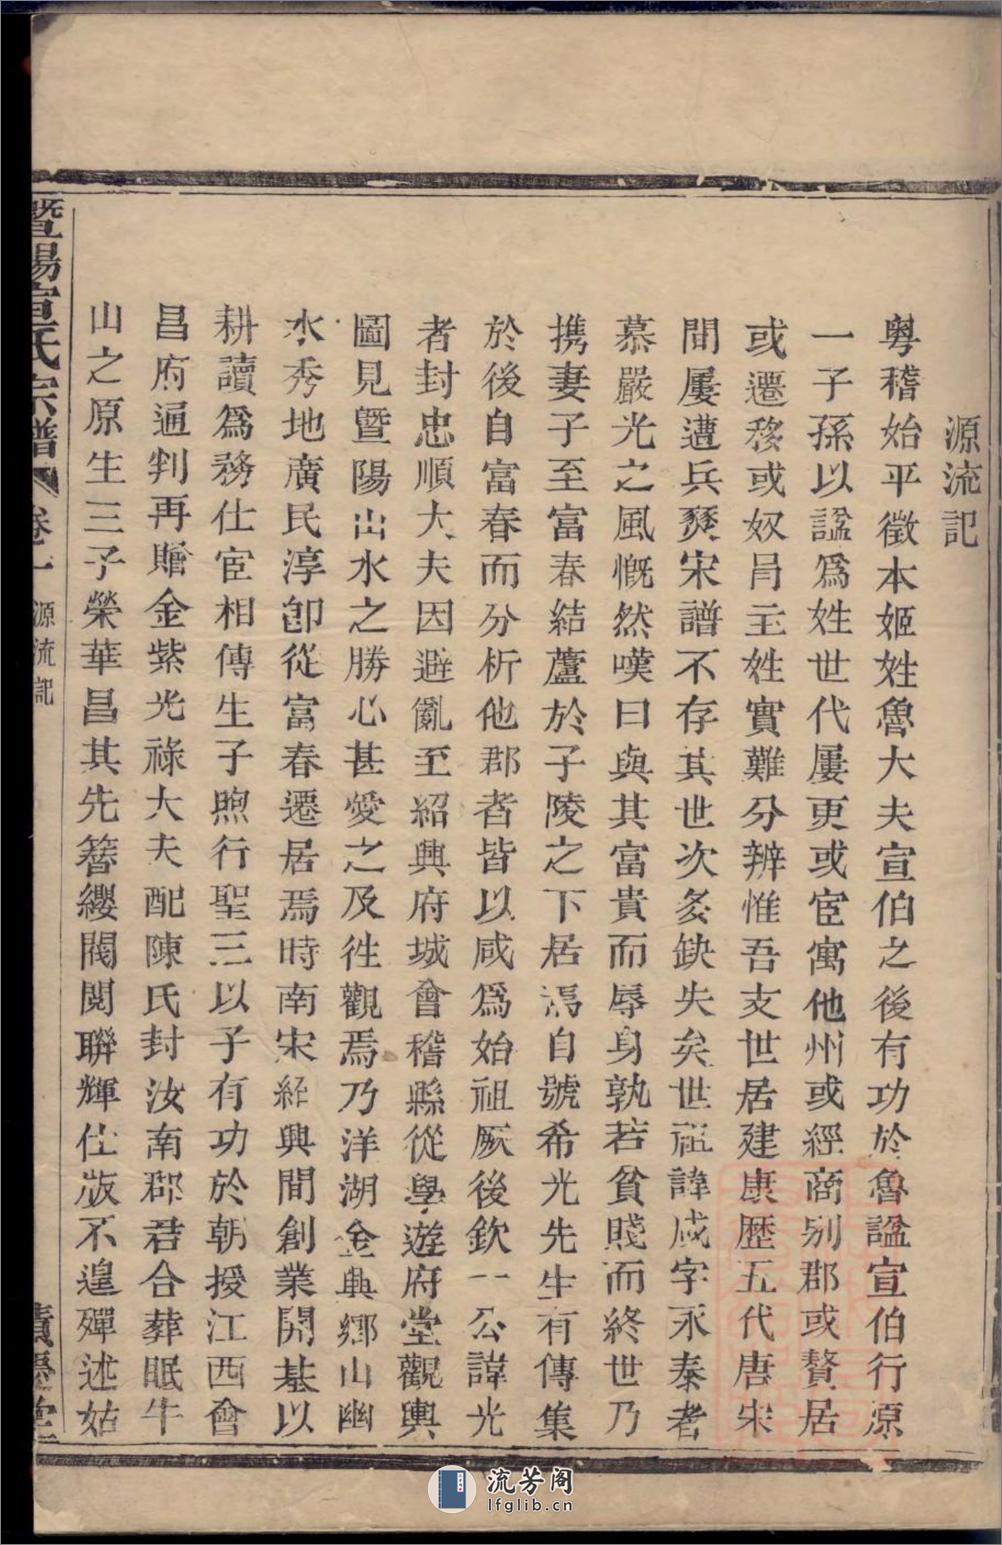 源流記
粵稽始平徵本姬姓魯大夫宣伯之後有功於魯謚宣伯行原
一子孫以謚爲姓世代屢更或宦寓他州或經商别郡或贅居
或遷移或奴冐主姓實難分辨惟吾支世居建康歷五代唐宋
間屢遭兵燹宋譜不存其世次多缺失矣世祖諱咸字永秦者
慕嚴光之風慨然嘆曰與其富貴而辱身孰若貧賤而終世乃
携妻子至富春結蘆於子陵之下居焉自號希光先生有傳集
於後自富春而分析他郡者皆以咸爲始祖厥後欽一公諱光
者封忠順大夫因避亂至紹興府城會稽縣從學遊府堂觀輿
圖見曁陽山水之勝心甚愛之及徃觀焉乃洋湖金興鄉山幽
水秀地廣民淳卽從富春遷居焉時南宋紹興間創業開基以
耕讀爲務仕宦相傳生子煦行聖三以子有功於朝授江西會
昌府通判再贈金紫光祿大夫配陳氏封汝南郡君合葬眠牛
山之原生三子榮華昌其先簪纓閥閱聯輝仕版不遑殫述姑
暨陽宣氏宗譜 卷一 源流記
流芳阁
lfglib.cn